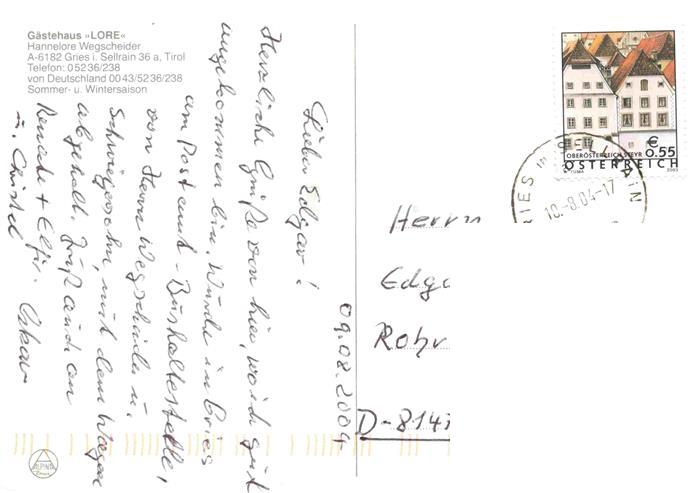 Gästehaus »LORE«
Hannelore Wegscheider
A-6182 Gries i. Sellrain 36 a, Tirol
Telefon: 05236/238
von Deutschland 0043/5236/238
Sommer- u. Wintersaison
09.08.2004
Lieber Edgar!
Herzliche Grüße von hier, wo ich gut
angekommen bin. Wurde in Gries
am Postamt - Bushaltestelle,
von Herrn Wegscheider u.
Schwiegersohn, mit dem Wagen
abgeholt. Grüß auch an
Renate + Elfr. Oskar
u. Christel
€
0.55
OBERÖSTERREICH STEYR
ÖSTERREICH
A. TUMA
2003
RIES im SELLRAIN
10.-8.04-17
Herrn
Edga
Rohr
D-8147
ALPINA